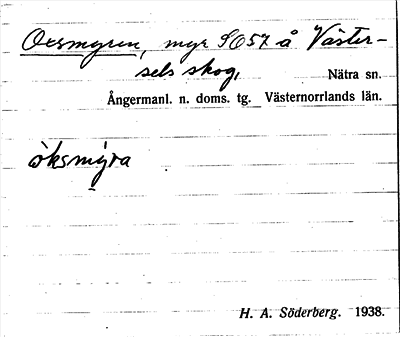 Oxsmyren, myr SO57 å Väster-
sels skog,
Nätra sn.
Ångermanl. n. doms. tg. Västernorrlands län.
öksmýra
H. A. Söderberg. 1938.